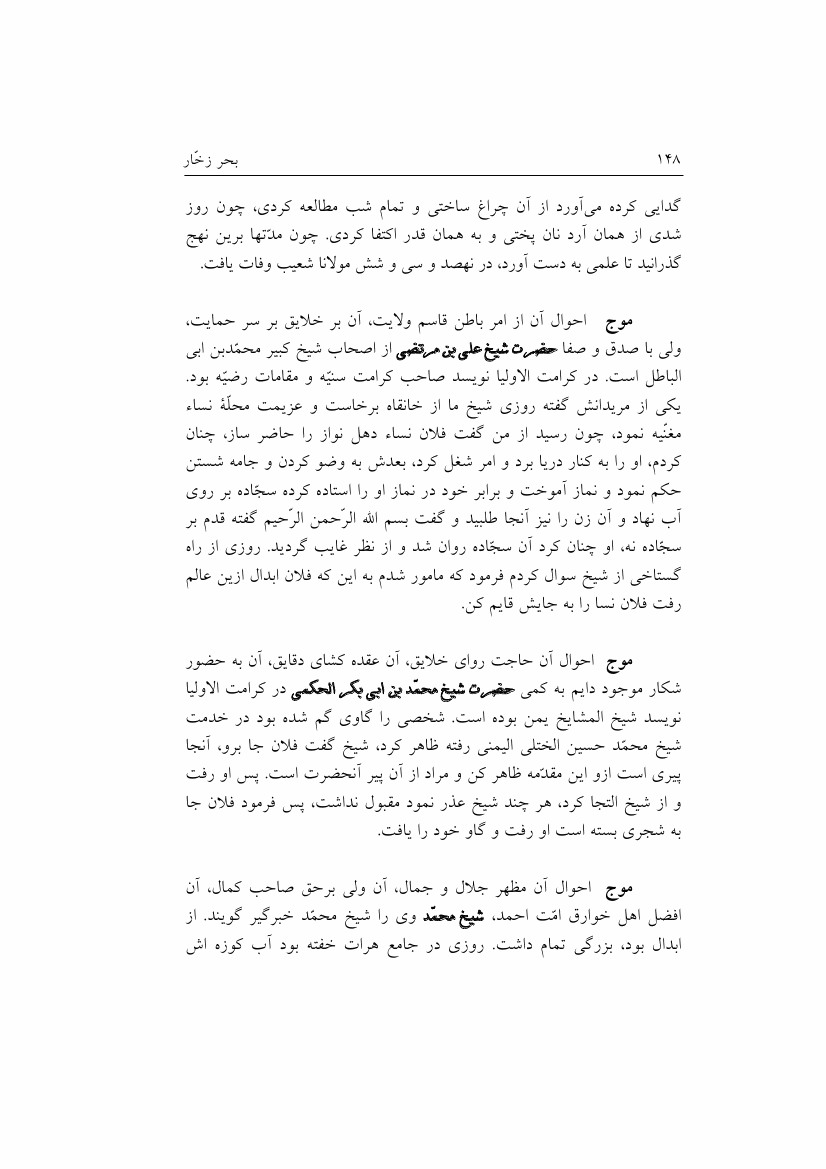 ۱۴۸ بحر زخّار
گدایی کرده می‌آورد از آن چراغ ساختی و تمام شب مطالعه کردی، چون روز
شدی از همان آرد نان پختی و به همان قدر اکتفا کردی. چون مدّتها برین نهج
گذرانید تا علمی به دست آورد، در نهصد و سی و شش مولانا شعیب وفات یافت.
موج احوال آن از امر باطن قاسم ولایت، آن بر خلایق بر سر حمایت،
ولی با صدق و صفا حضرت شیخ علی بن مرتضی از اصحاب شیخ کبیر محمّدبن ابی
الباطل است. در کرامت الاولیا نویسد صاحب کرامت سنیّه و مقامات رضیّه بود.
یکی از مریدانش گفته روزی شیخ ما از خانقاه برخاست و عزیمت محلّهٔ نساء
مغنّیه نمود، چون رسید از من گفت فلان نساء دهل نواز را حاضر ساز، چنان
کردم، او را به کنار دریا برد و امر شغل کرد، بعدش به وضو کردن و جامه شستن
حکم نمود و نماز آموخت و برابر خود در نماز او را استاده کرده سجّاده بر روی
آب نهاد و آن زن را نیز آنجا طلبید و گفت بسم الله الرّحمن الرّحیم گفته قدم بر
سجّاده نه، او چنان کرد آن سجّاده روان شد و از نظر غایب گردید. روزی از راه
گستاخی از شیخ سوال کردم فرمود که مامور شدم به این که فلان ابدال ازین عالم
رفت فلان نسا را به جایش قایم کن.
موج احوال آن حاجت روای خلایق، آن عقده کشای دقایق، آن به حضور
شکار موجود دایم به کمی حضرت شیخ محمّد بن ابی بکر الحکمی در کرامت الاولیا
نویسد شیخ المشایخ یمن بوده است. شخصی را گاوی گم شده بود در خدمت
شیخ محمّد حسین الختلی الیمنی رفته ظاهر کرد، شیخ گفت فلان جا برو، آنجا
پیری است ازو این مقدّمه ظاهر کن و مراد از آن پیر آنحضرت است. پس او رفت
و از شیخ التجا کرد، هر چند شیخ عذر نمود مقبول نداشت، پس فرمود فلان جا
به شجری بسته است او رفت و گاو خود را یافت.
موج احوال آن مظهر جلال و جمال، آن ولی برحق صاحب کمال، آن
افضل اهل خوارق امّت احمد، شیخ محمّد وی را شیخ محمّد خبرگیر گویند. از
ابدال بود، بزرگی تمام داشت. روزی در جامع هرات خفته بود آب کوزه اش